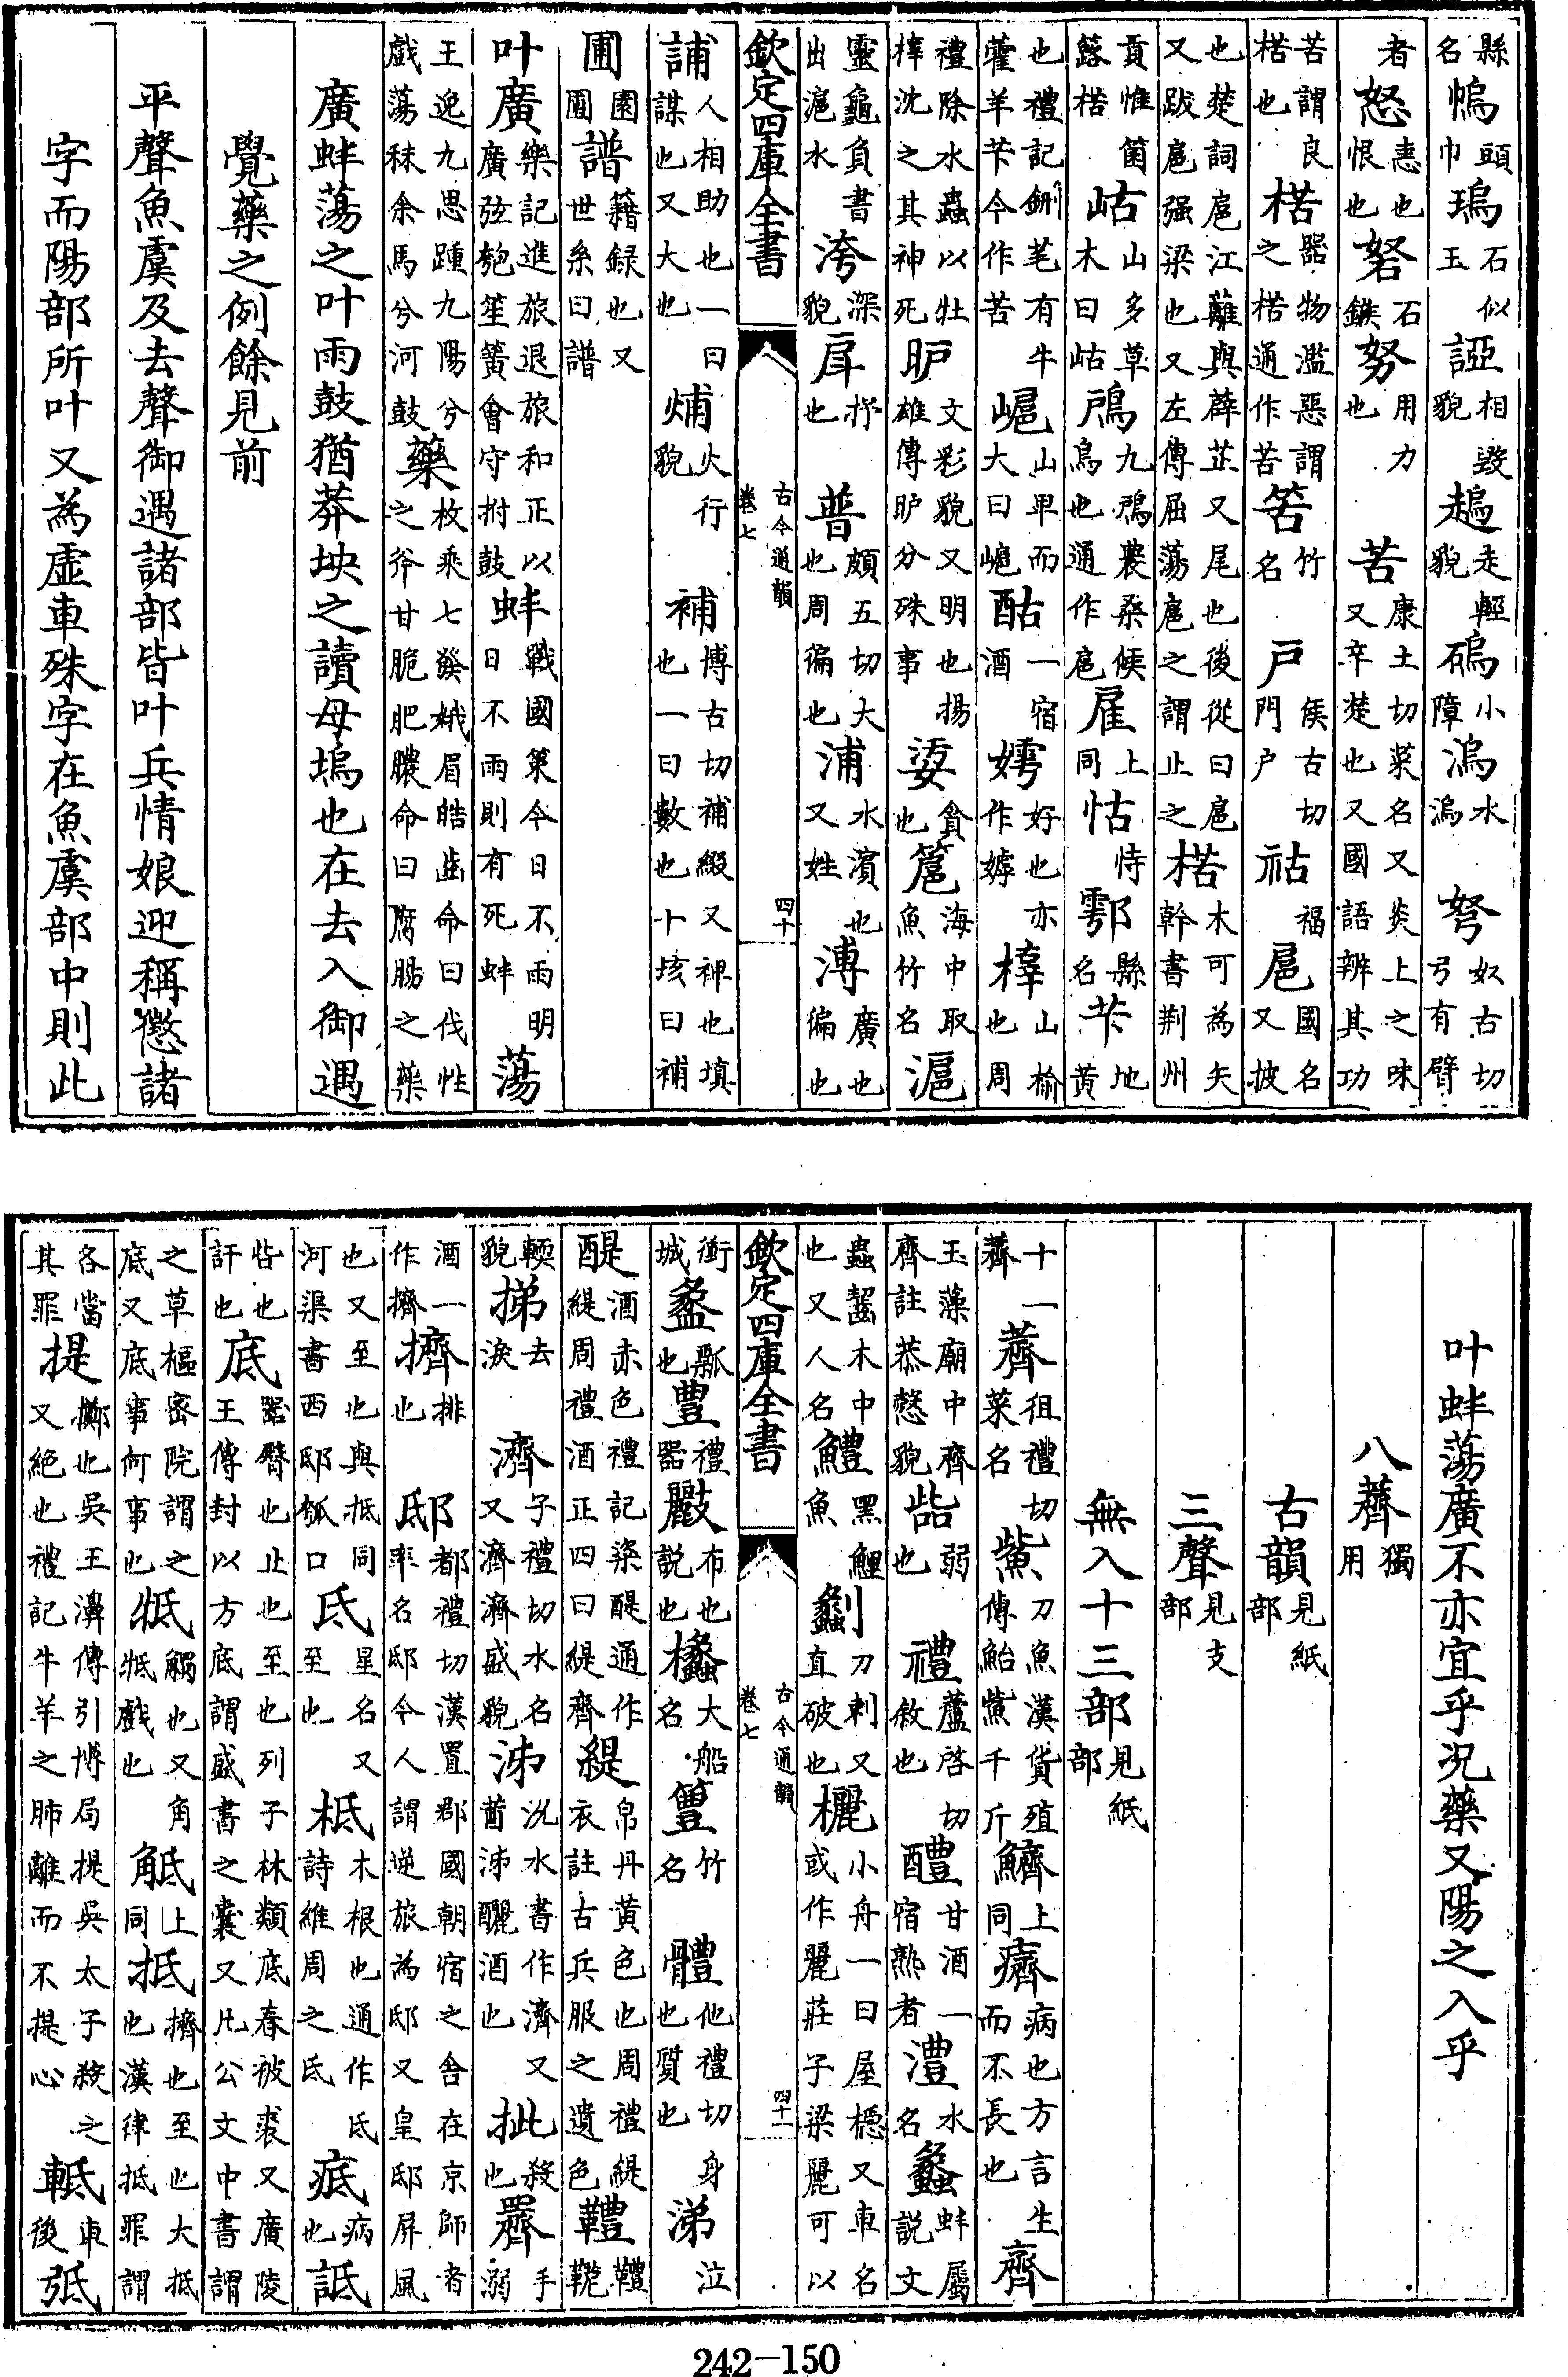 縣名 巾頭 瑦石似玉 䛩相毀貌 走輕貌 小障 溩水溩 弩奴古切弓有臂
者怒恚也恨也 砮石鏃 努用力也 苦康土切菜名又炎上之味又辛楚也又國語辨其功
苦謂良楛也 楛器物濫惡謂之楛通作苦 䇢竹名 戸侯古切門戶 祜福 扈國名又披
也楚詞扈江蘺與薜芷又尾也後從曰扈又跋扈强梁也又左傳屈蕩扈之謂止之 楛木可為矢幹書荆州
貢惟箘簬楛 岵山多草木曰岵 鳸九鳸農桑候鳥也通作扈 雇上同 怙恃 鄠縣名 芐地黄
也禮記鉶芼有牛藿羊芐今作苦 山卑而大曰 酤一宿酒 嫮好也亦作嫭 榟山榆也周
禮除水蟲以牡榟沈之其神死 昈文彩貌又明也揚雄傳昈分殊事 貪也 海中取魚竹名 滬
靈龜負書出滬水 洿深貌 戽抒也 普頗五切大也周徧也 浦水濱也又姓 溥廣也徧也
欽定四庫全書 古今通韻 卷七 四十
誧人相助也一曰謀也又大也 烳火行貌 補博古切補綴又裨也填也一曰數也十垓曰補
圃園圃 譜籍録也又世系曰譜
叶廣樂記進旅退旅和正以廣弦匏笙簧會守拊鼓 蚌戰國策今日不雨明日不雨則有死蚌 蕩
王逸九思踵九陽兮戲蕩秣余馬兮河鼓 藥枚乘七發娥眉皓齒命曰伐性之斧甘脆肥膿命曰腐腸之藥
廣蚌蕩之叶雨鼓猶莽坱之讀母塢也在去入御遇
覺藥之例餘見前
平聲魚虞及去聲御遇諸部皆叶兵情娘迎稱懲諸
字而陽部所叶又為虛車殊字在魚虞部中則此
叶蚌蕩廣不亦宜乎況藥又陽之入乎
八薺獨用
古韻見紙部
三聲見支部
無入十三部見紙部
十一薺 薺徂禮切菜名 鮆刀魚漢貨殖傳鮐鮆千斤 鱭上同 癠病也方言生而不長也 齊
玉藻廟中齊齊註恭慤貌 㱔弱也 禮蘆啓切敘也 醴甘酒一宿熟者 澧水名 蠡蚌屬説文
蟲齧木中也又人名 鱧黑鯉魚 劙刀刺又直破也 欐小舟一曰屋檼又車名或作麗莊子梁麗可以
欽定四庫全書 古今通韻 卷七 四十一
衝城 盠瓢也 豊禮器 布也説也 欚大船名 竹名 體他禮切身也質也 涕泣
醍酒赤色禮記粢醍通作緹周禮酒正四曰緹齊 緹帛丹黄色也周禮緹衣註古兵服之遺色 鞻鞮
輭貌 挮去淚 濟子禮切水名又濟濟盛貌 泲沇水書作濟又茜泲釃酒也 㧗殺也 手溺
酒一作擠 擠排也 邸都禮切漢置郡國朝宿之舍在京師者率名邸今人謂逆旅為邸又皇邸屏風
也又至也與抵同河渠書西邸瓠口 氐星名又至也 柢木根也通作氐詩維周之氐 疧病也 詆
呰也訐也 底器臀也止也至也列子林類底春被裘又廣陵王傳封以方底謂盛書之囊又凡公文中書謂
之草樞密院謂之底又底事何事也 牴觸也又角牴戲也 觝上同 抵擠也至也大抵也漢律抵罪謂
各當其罪 提擲也吳王濞傳引博局提吳太子殺之又絶也禮記牛羊之肺離而不提心 軧車後 弤
242-150